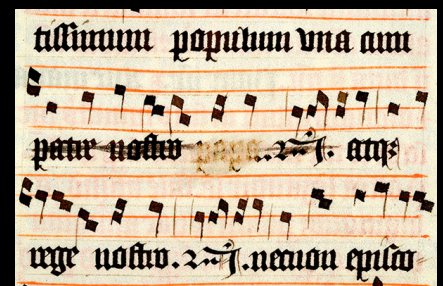 tissimum populum vna cum
patre nostro papa .N. atqꝫ
rege nostro .N. necnon episco